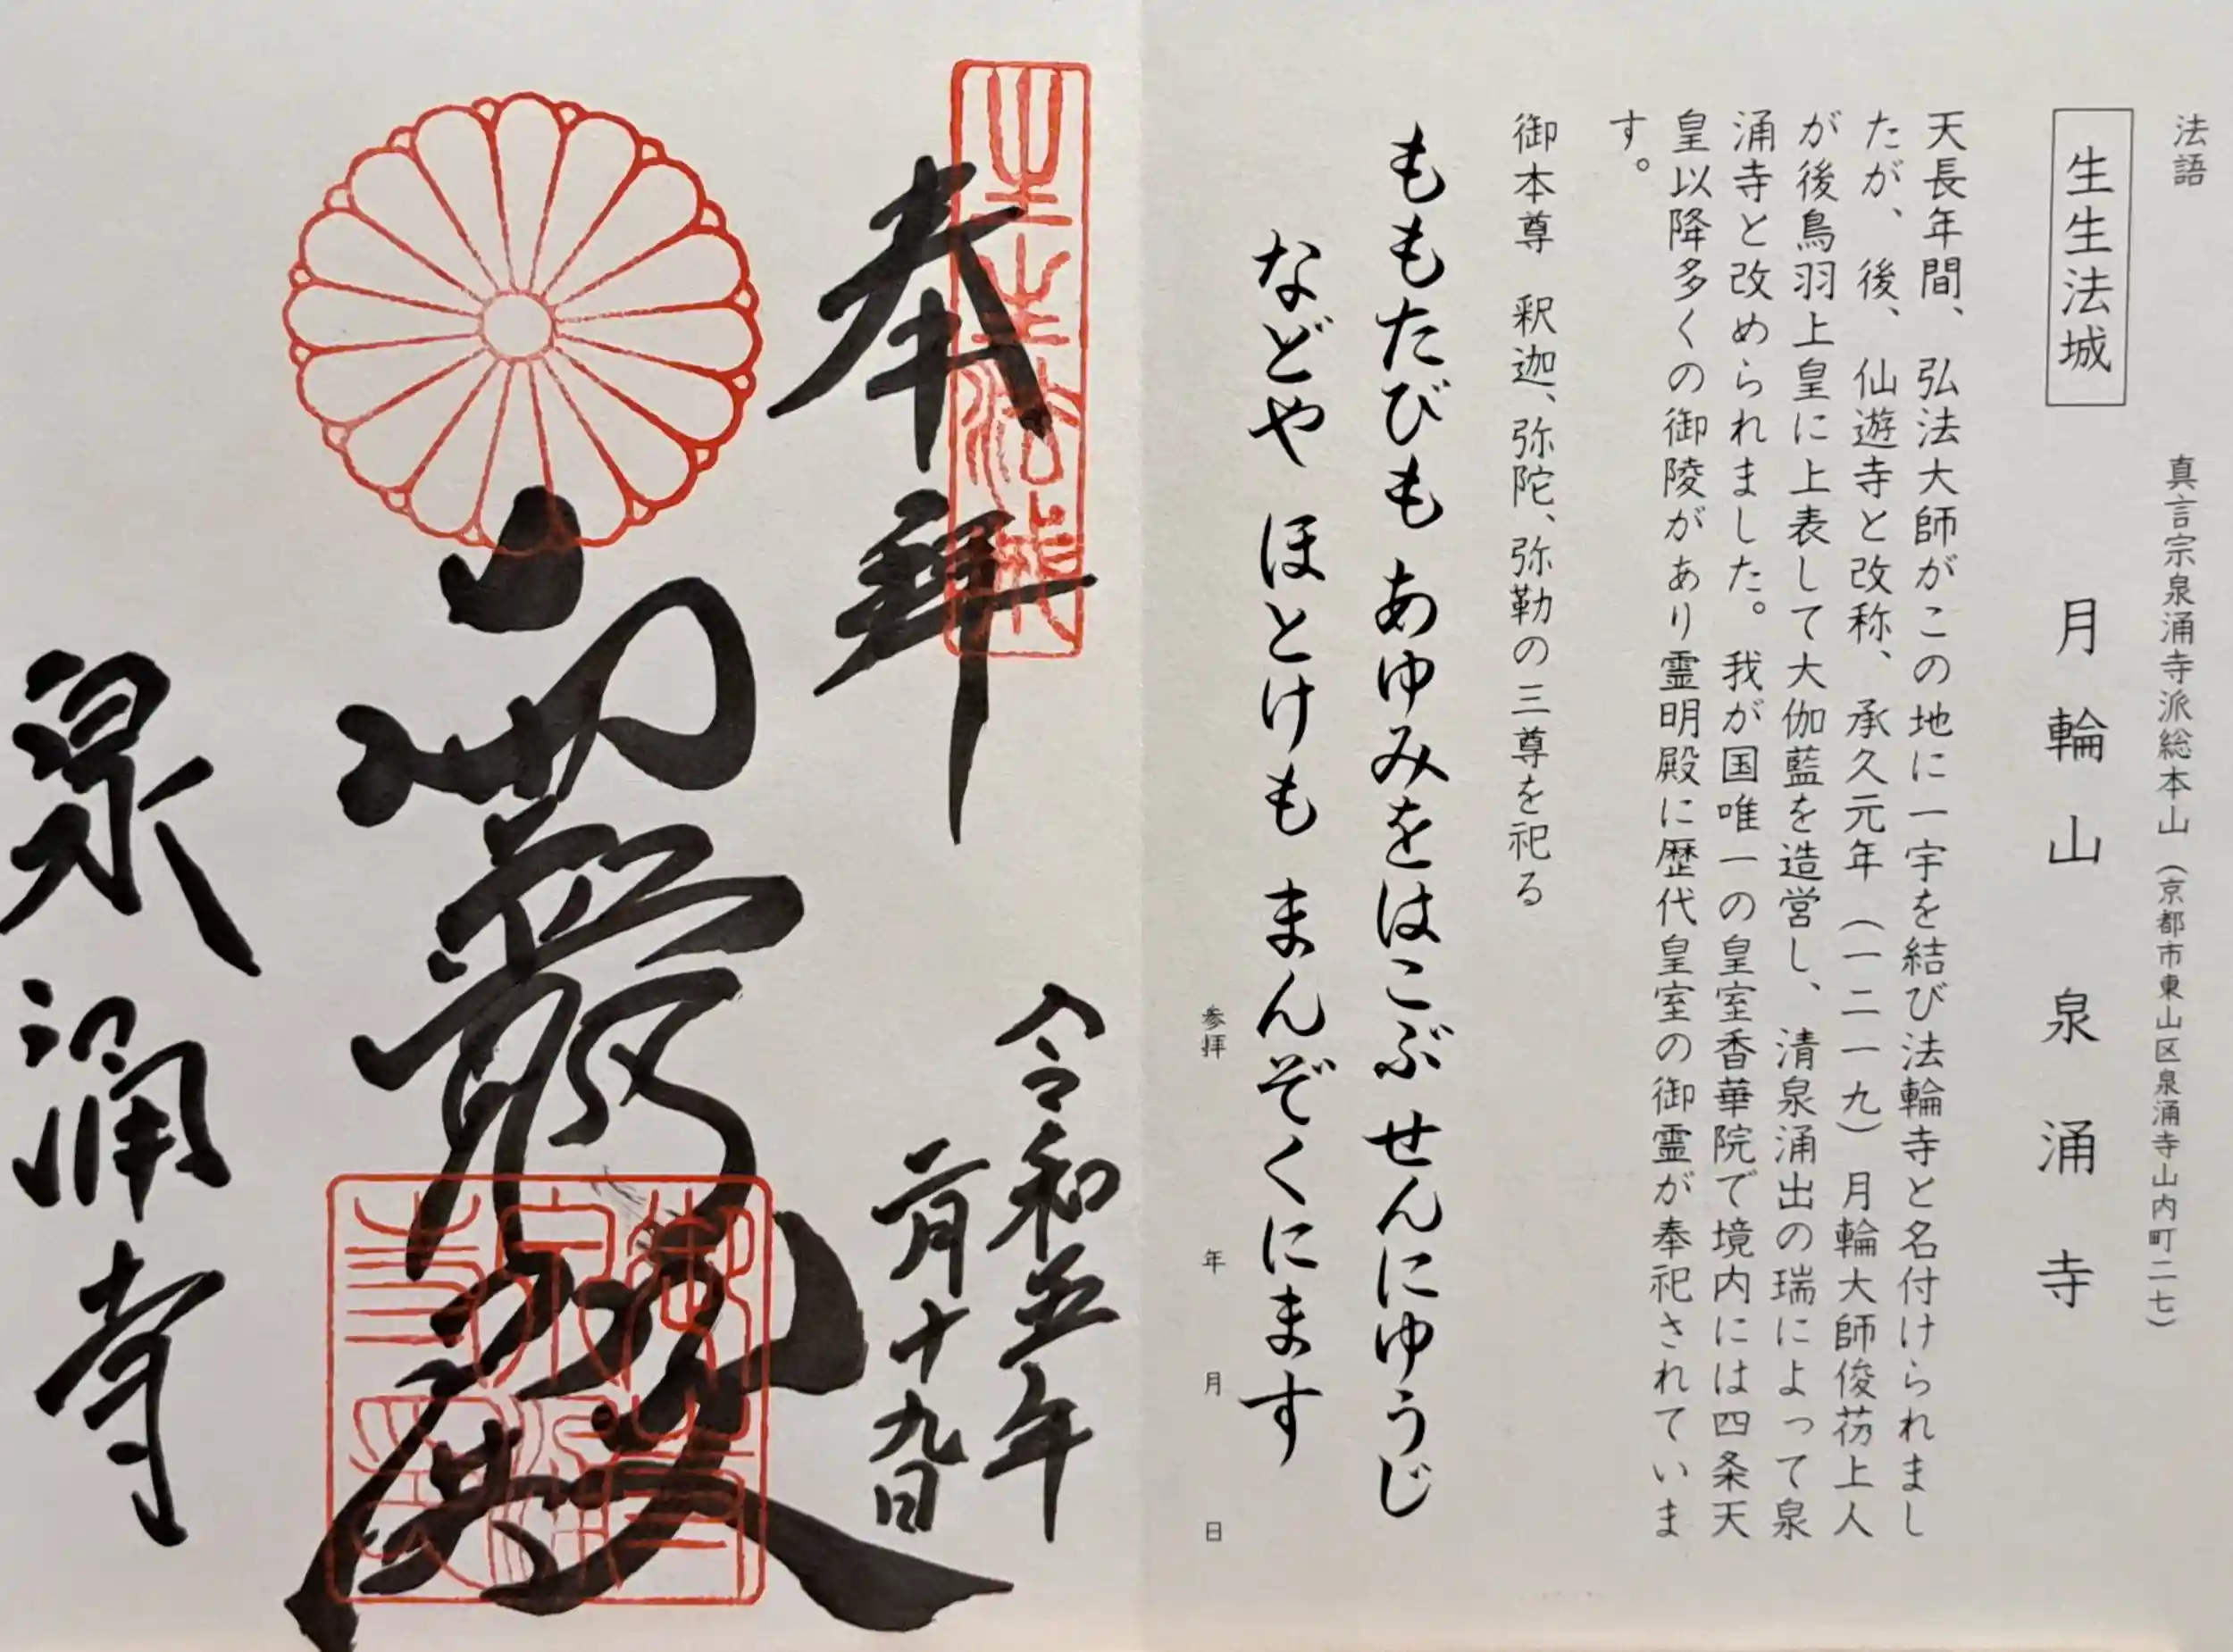 法語
真言宗泉涌寺派総本山(京都市東山区泉涌寺山内町二七)
生生法城
月輪山 泉涌寺
天長年間、弘法大師がこの地に一宇を結び法輪寺と名付けられまし
たが、後、仙遊寺と改称、承久元年(一二一九)月輪大師俊芿上人
が後鳥羽上皇に上表して大伽藍を造営し、清泉涌出の瑞によって泉
涌寺と改められました。我が国唯一の皇室香華院で境内には四条天
皇以降多くの御陵があり霊明殿に歴代皇室の御霊が奉祀されていま
す。
御本尊 釈迦、弥陀、弥勒の三尊を祀る
ももたびも あゆみをはこぶ せんにゆうじ
などや ほとけも まんぞくにます
参拝 年 月 日
生生法城
奉拝
令和五年
二月十九日
霊明殿
泉涌寺